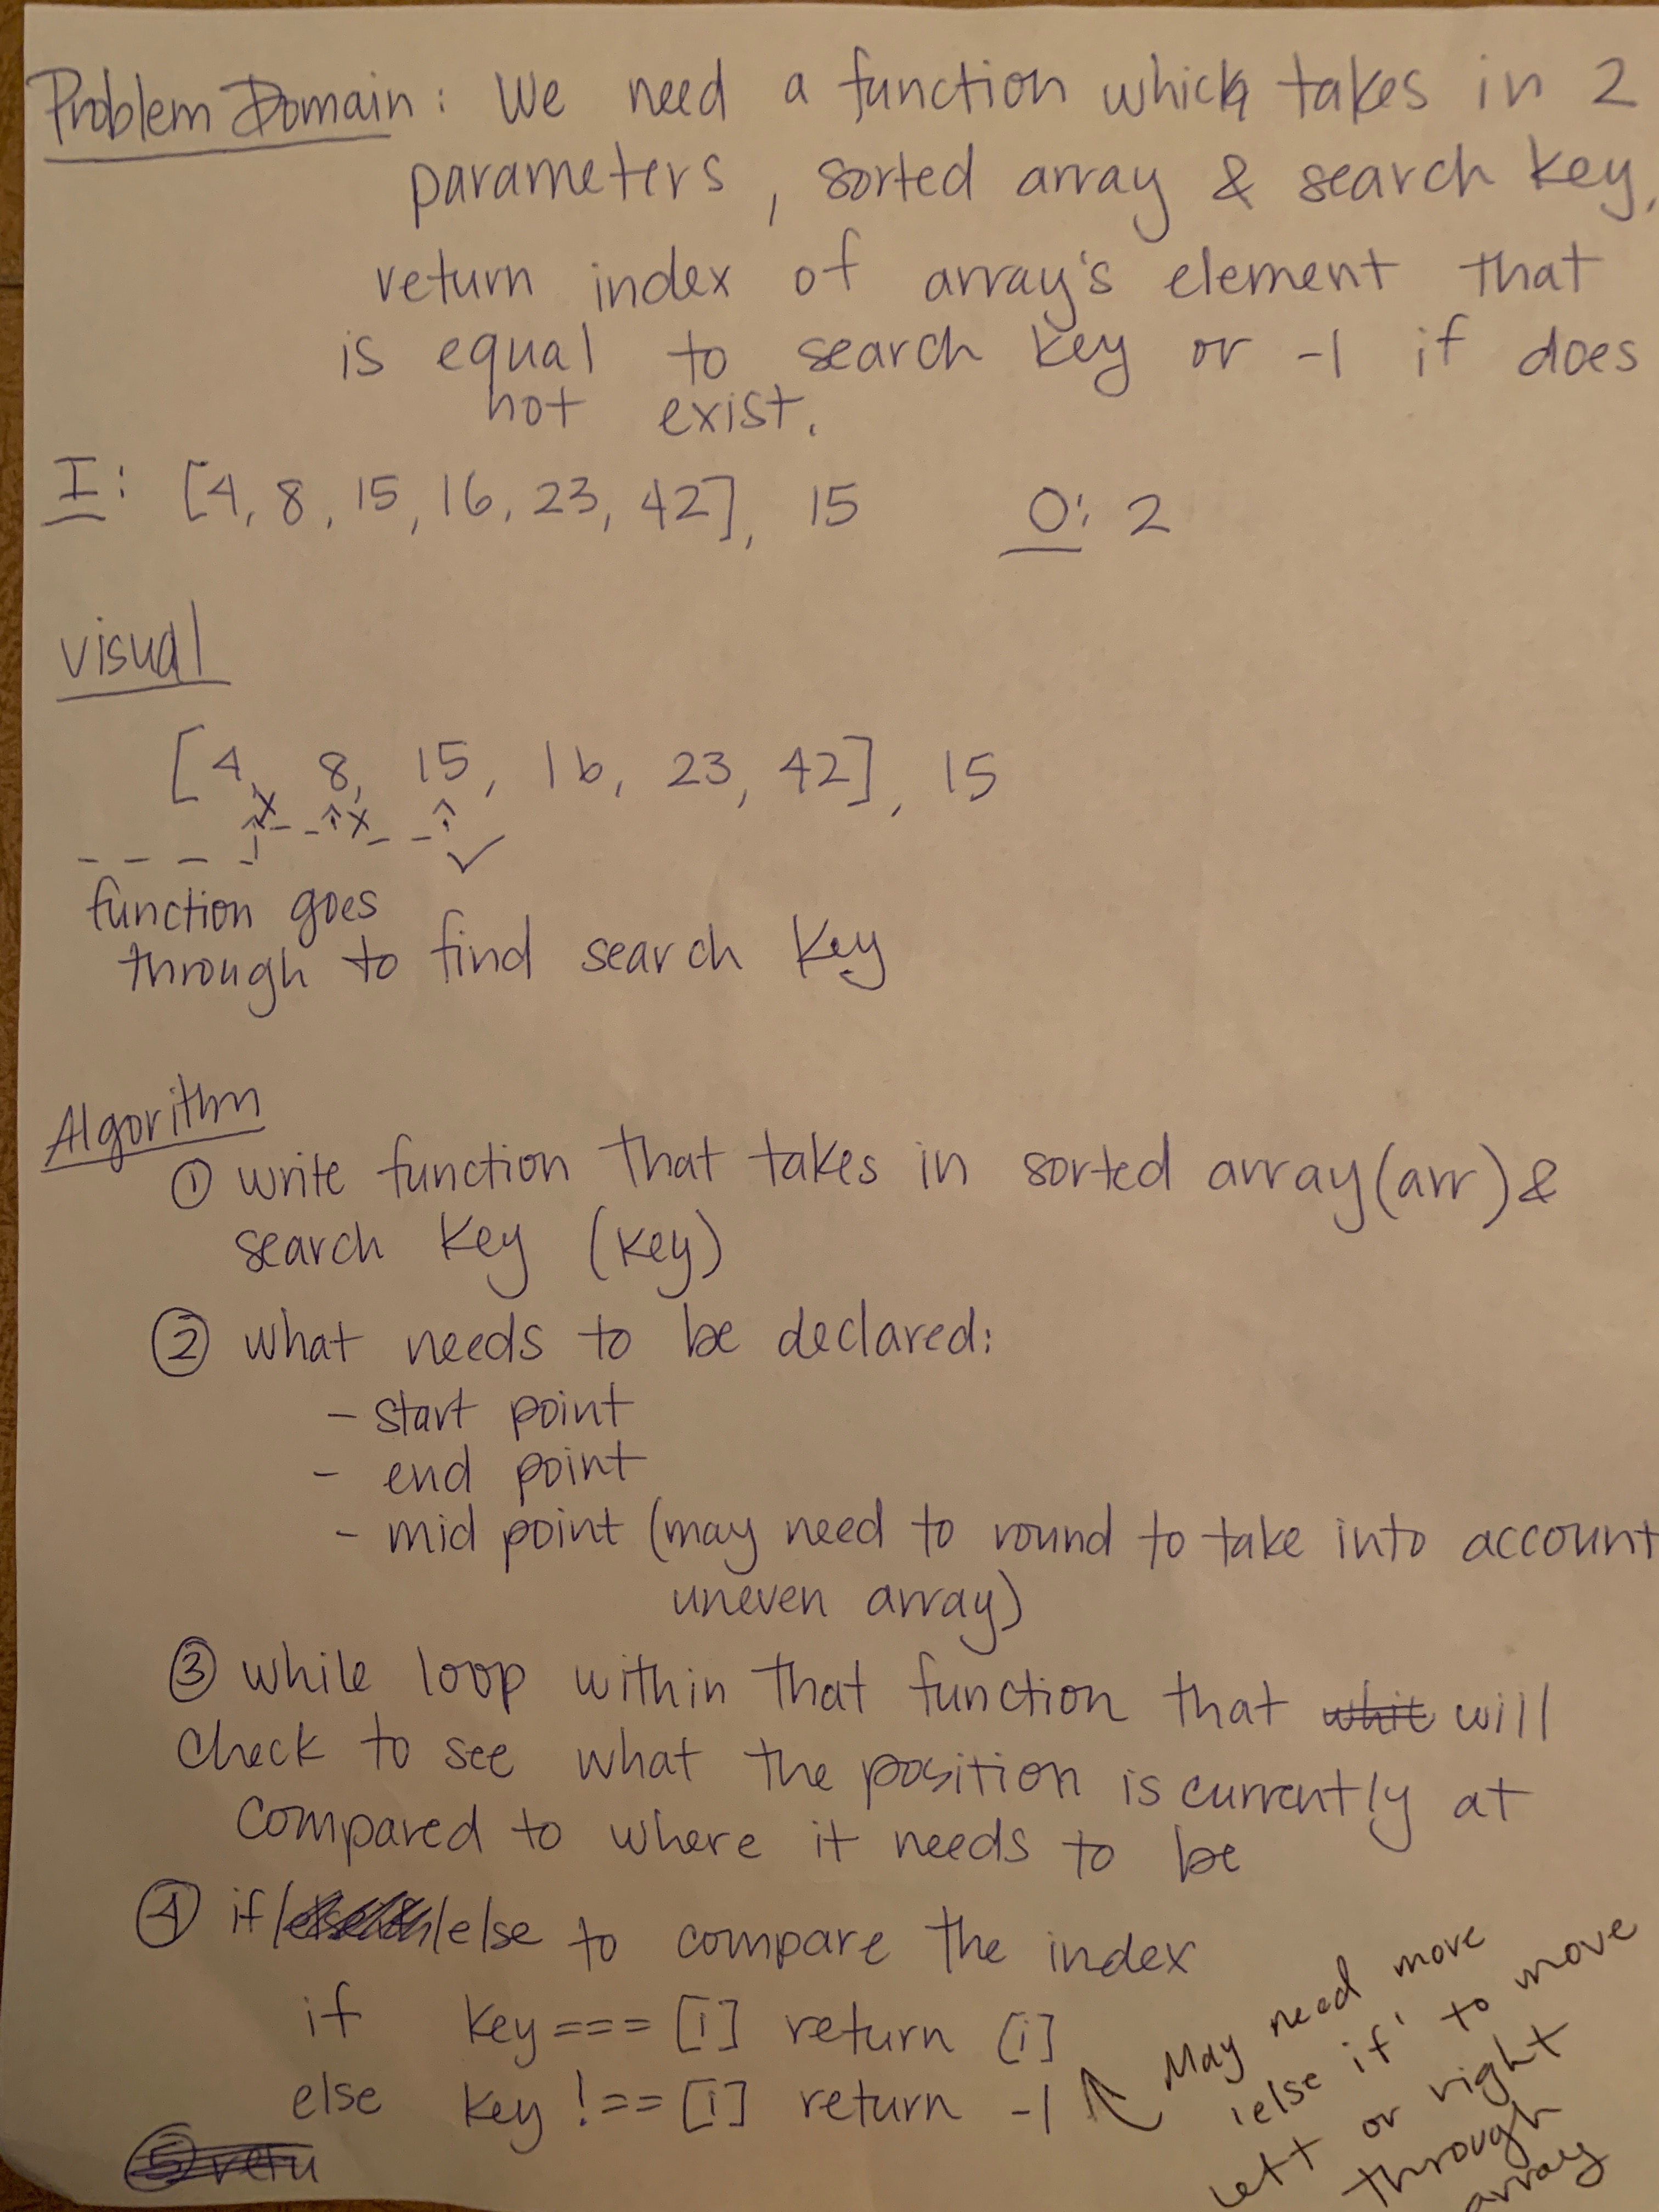 Problem Domain: We need a function which takes in 2
parameters, sorted array & search key,
return index of array's element that
is equal to search key or -1 if does
not exist.
I: [4, 8, 15, 16, 23, 42], 15 O: 2
visual
[4, 8, 15, 16, 23, 42], 15
function goes
through to find search key
Algorithm
① write function that takes in sorted array (arr) &
search key (key)
② what needs to be declared:
- start point
- end point
- mid point (may need to round to take into account
uneven array)
③ while loop within that function that whit will
check to see what the position is currently at
compared to where it needs to be
④ if/else to compare the index
if key === [i] return [i]
else key !== [i] return -1
May need more
'else if' to move
left or right
through
array
⑤ retu